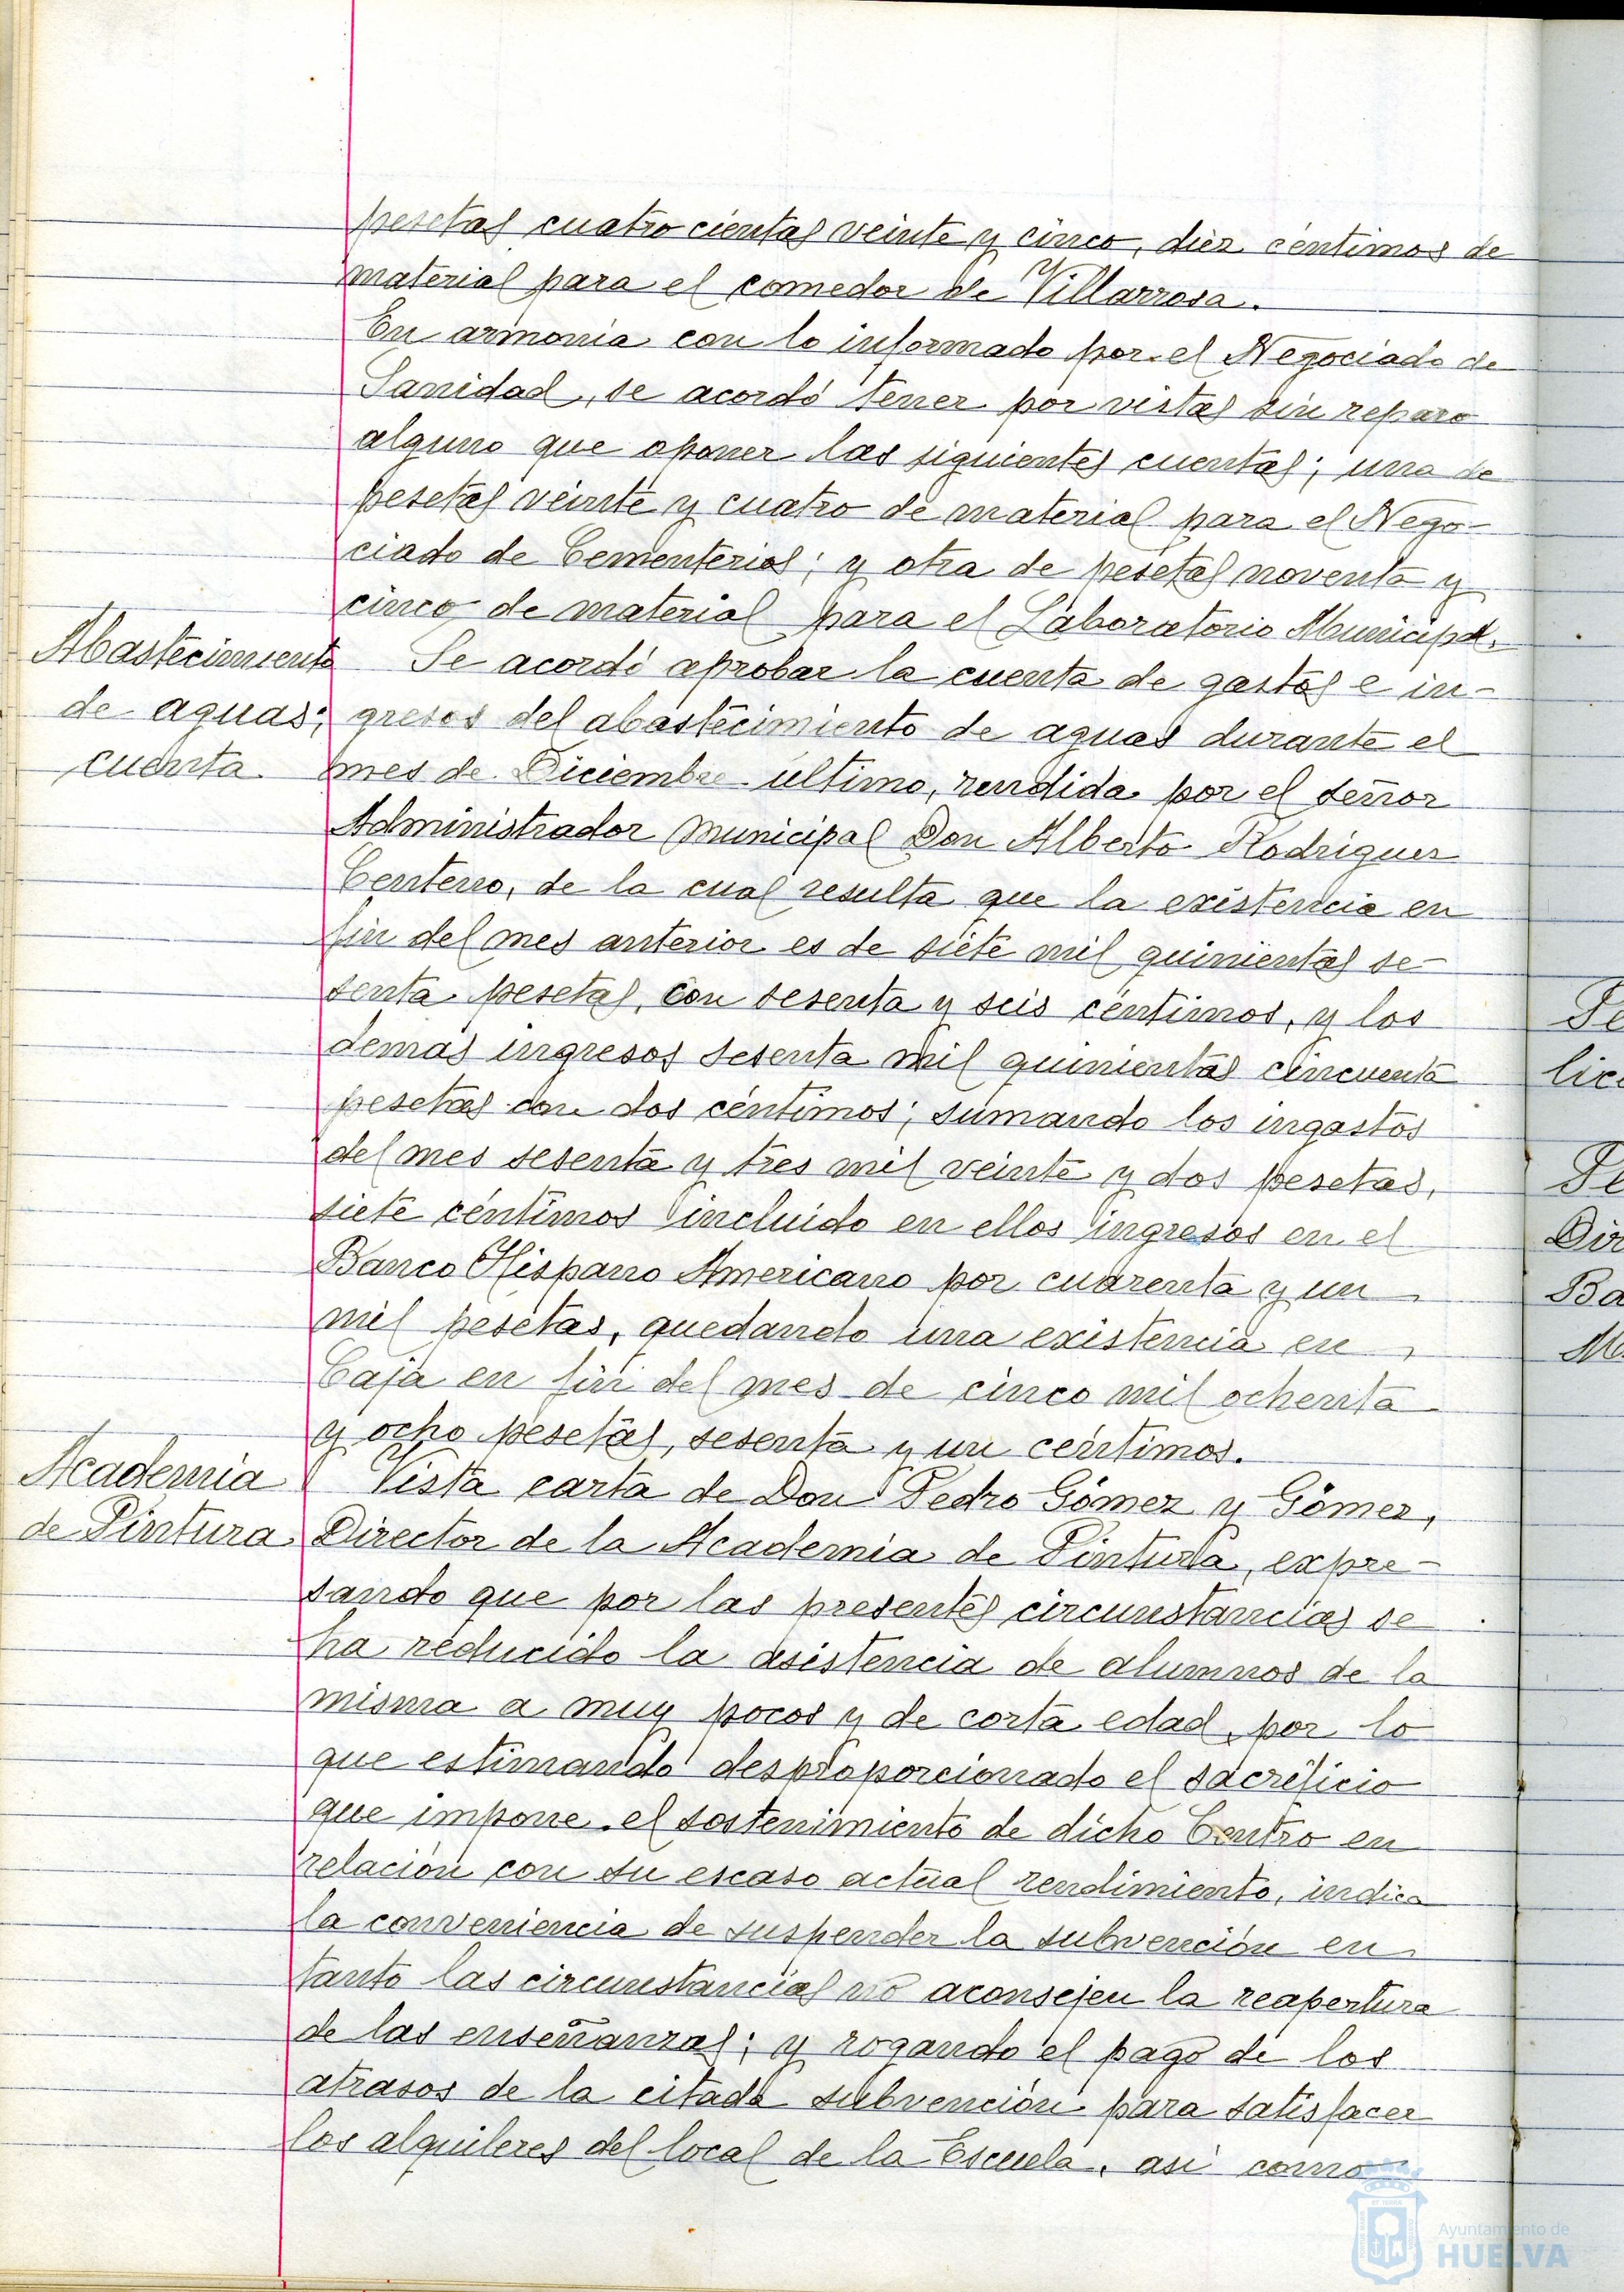 pesetas cuatro cientas veinte y cinco, diez céntimos de
material para el comedor de Villarrosa.
En armonía con lo informado por el Negociado de
Sanidad, se acordó tener por vistas sin reparo
alguno que oponer las siguientes cuentas; una de
pesetas veinte y cuatro de material para el Nego-
ciado de Cementerios; y otra de pesetas noventa y
cinco de material para el Laboratorio Municipal.
Abastecimiento
de aguas;
cuenta.
Se acordó aprobar la cuenta de gastos e in-
gresos del abastecimiento de aguas durante el
mes de Diciembre último, rendida por el señor
Administrador municipal Don Alberto Rodriguez
Centeno, de la cual resulta que la existencia en
fin del mes anterior es de siete mil quinientas se-
senta pesetas, con sesenta y seis céntimos, y los
demás ingresos sesenta mil quinientas cincuenta
pesetas con dos céntimos; sumando los ingastos
del mes sesenta y tres mil veinte y dos pesetas,
siete céntimos incluido en ellos ingresos en el
Banco Hispano Americano por cuarenta y un
mil pesetas, quedando una existencia en
Caja en fin del mes de cinco mil ochenta
y ocho pesetas, sesenta y un céntimos.
Academia
de Pintura.
Vista carta de Don Pedro Gómez y Gómez,
Director de la Academia de Pintura, expre-
sando que por las presentes circunstancias se
ha reducido la asistencia de alumnos de la
misma a muy pocos y de corta edad, por lo
que estimando desproporcionado el sacrificio
que impone el sostenimiento de dicho Centro en
relación con su escaso actual rendimiento, indica
la conveniencia de suspender la subvención en
tanto las circunstancias no aconsejen la reapertura
de las enseñanzas; y rogando el pago de los
atrasos de la citada subvención para satisfacer
los alquileres del local de la Escuela, asi como
Ayuntamiento de
HUELVA